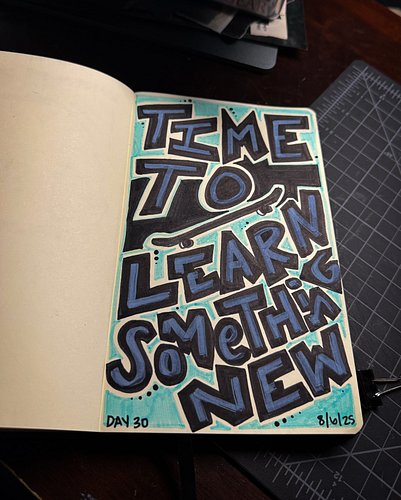 TIME
TO
LEARN
SOMeTHiNG
NEW
DAY 30
8/6/25